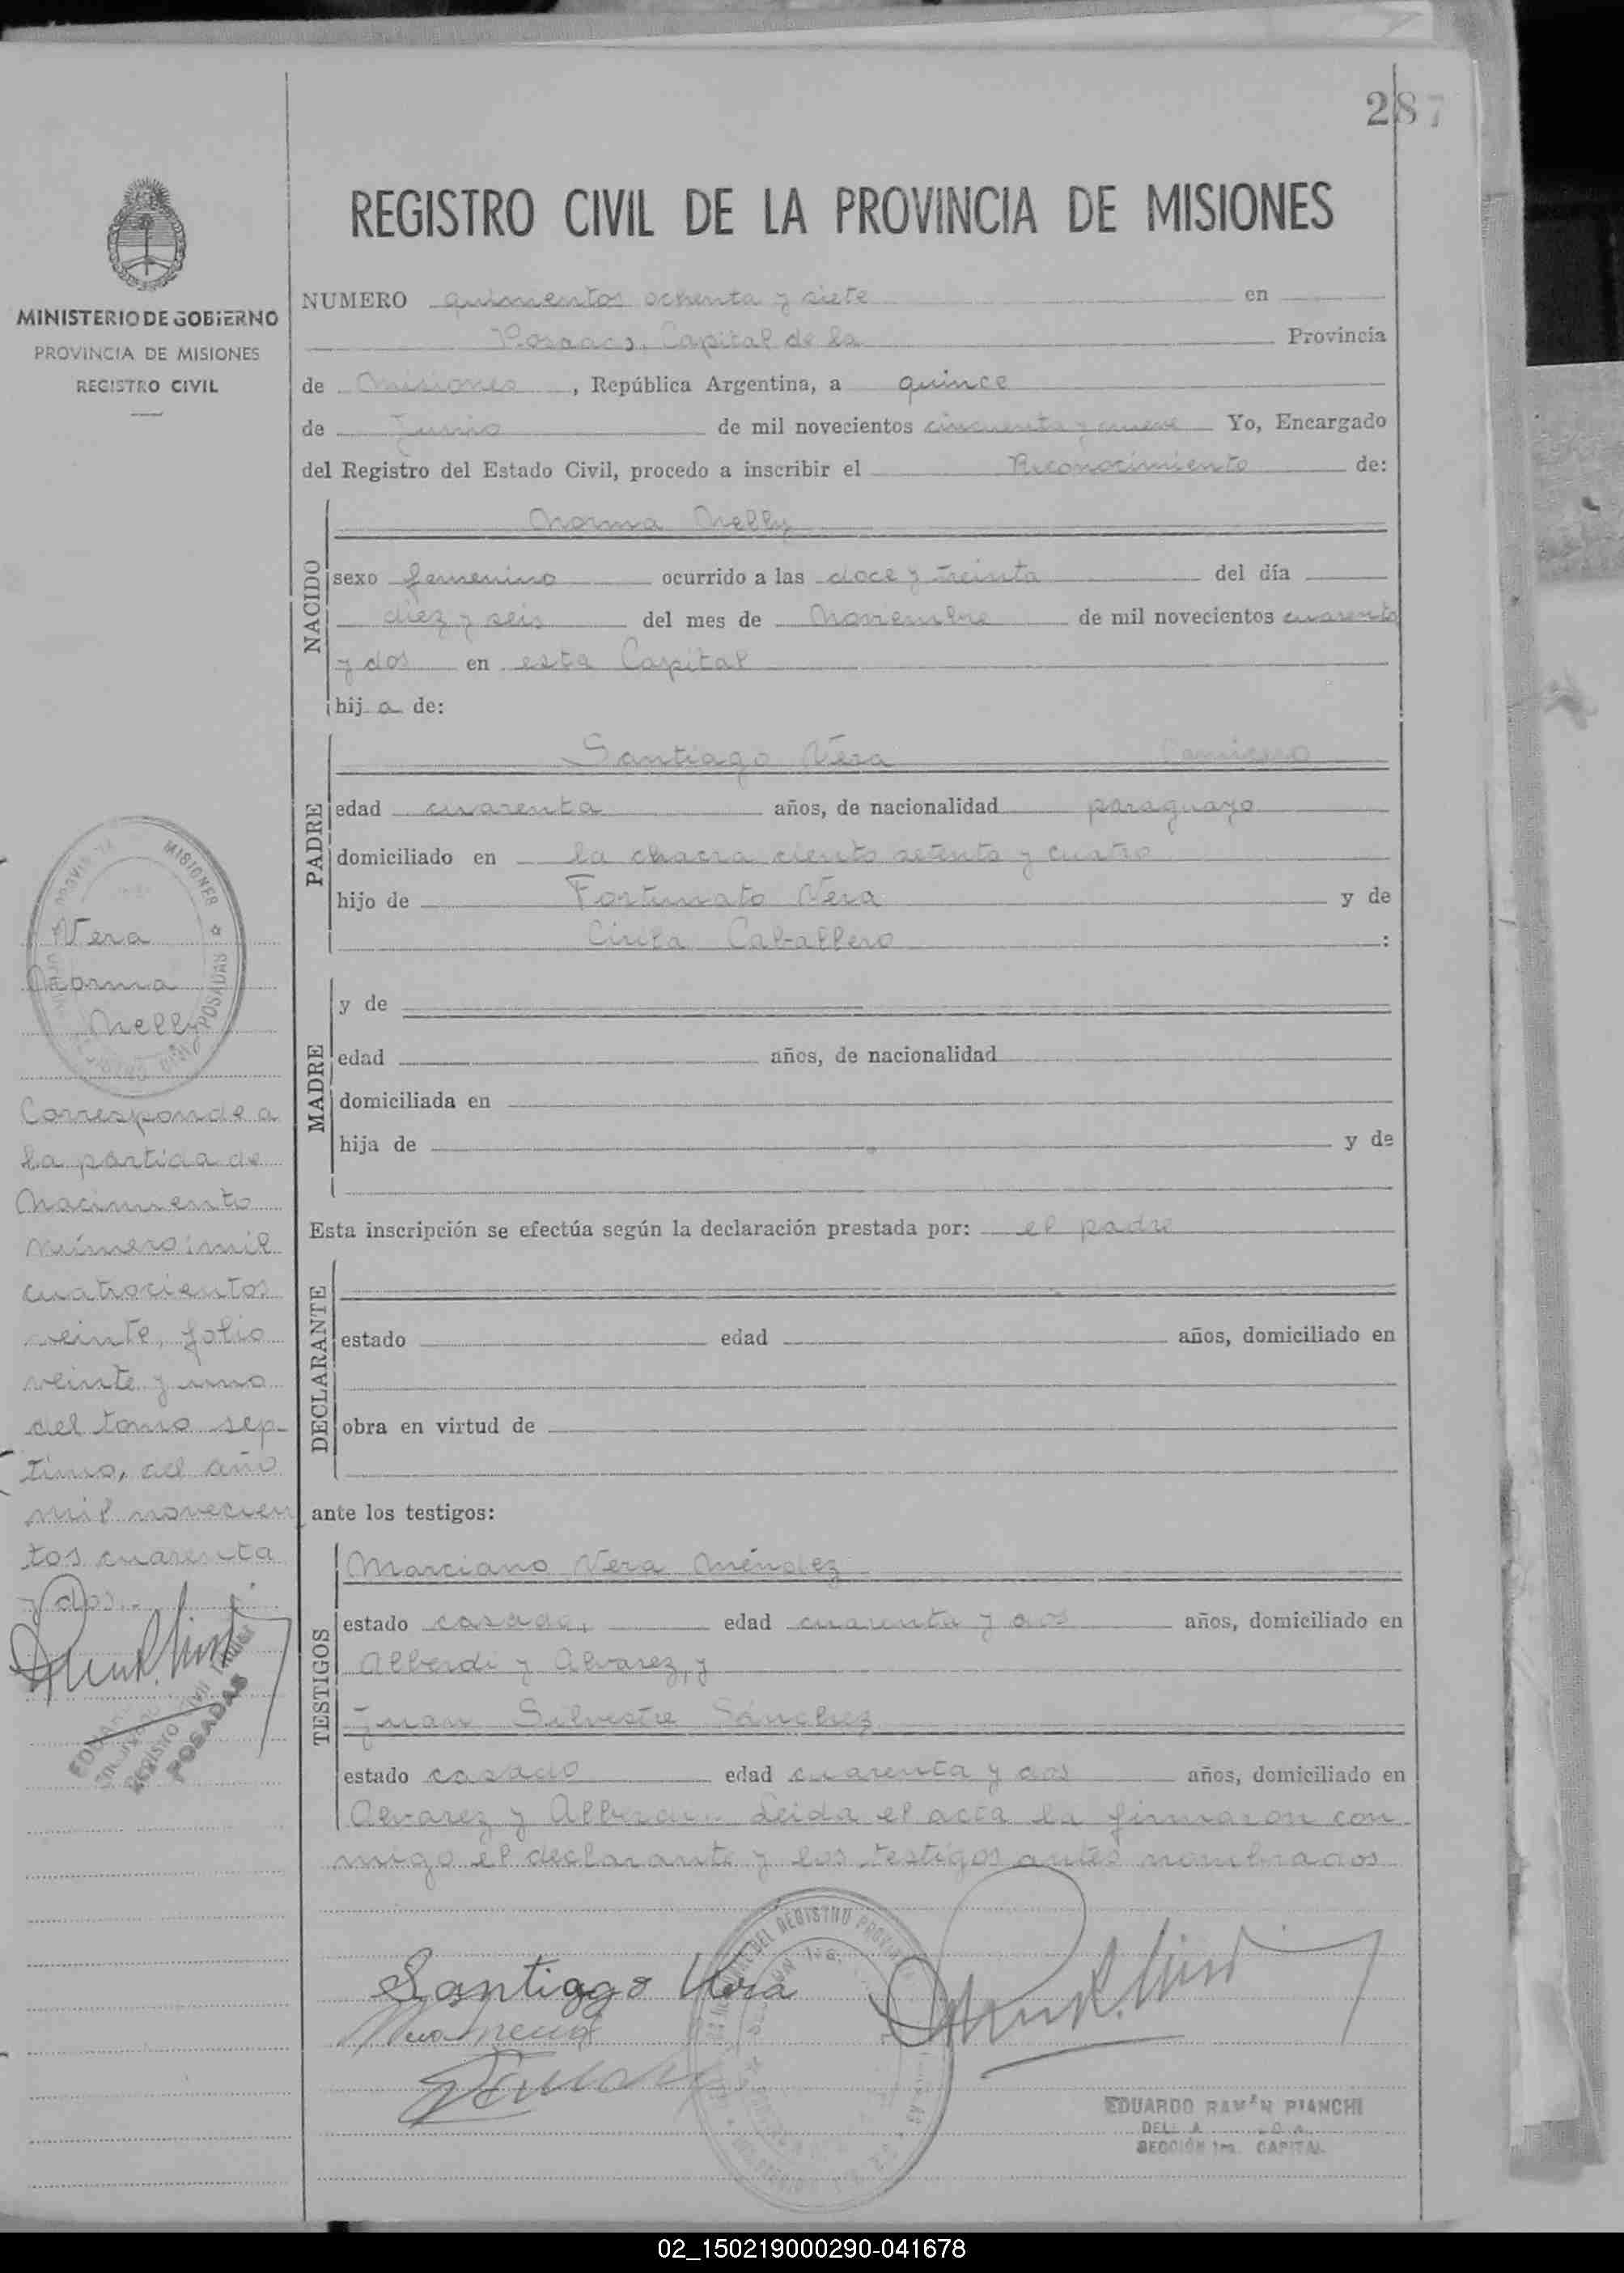 287
REGISTRO CIVIL DE LA PROVINCIA DE MISIONES
MINISTERIO DE GOBIERNO
PROVINCIA DE MISIONES
REGISTRO CIVIL
NUMERO quinientos ochenta y siete en
Posadas, Capital de la Provincia
de Misiones, República Argentina, a quince
de Junio de mil novecientos cincuenta y nueve Yo, Encargado
del Registro del Estado Civil, procedo a inscribir el Reconocimiento de:
NACIDO
Norma Nelly
sexo femenino ocurrido a las doce y treinta del día
diez y seis del mes de Noviembre de mil novecientos cuarenta
y dos en esta Capital
hij a de:
PADRE
Santiago Vera
edad cuarenta años, de nacionalidad paraguayo
domiciliado en la chacra ciento setenta y cuatro
hijo de Fortunato Vera y de
Cirila Caballero :
MADRE
y de
edad años, de nacionalidad
domiciliada en
hija de y de
Esta inscripción se efectúa según la declaración prestada por: el padre
DECLARANTE
estado edad años, domiciliado en
obra en virtud de
ante los testigos:
TESTIGOS
Marciano Vera Méndez
estado casado, edad cuarenta y dos años, domiciliado en
Alberdi y Alvarez, y
Juan Silvestre Sánchez
estado casado edad cuarenta y dos años, domiciliado en
Alvarez y Alberdi.- Leida el acta la firmaron con
migo el declarante y los testigos antes nombrados
Santiago Vera
EDUARDO RAMÓN PIANCHI
SECCIÓN 1ra. CAPITAL
Vera
Norma
Nelly
MISIONES
POSADAS
Corresponde a
la partida de
Nacimiento
número: mil
cuatrocientos
veinte, folio
veinte y uno
del tomo sep-
timo, del año
mil novecien
tos cuarenta
y dos.-
REGISTRO CIVIL
POSADAS
02_150219000290-041678